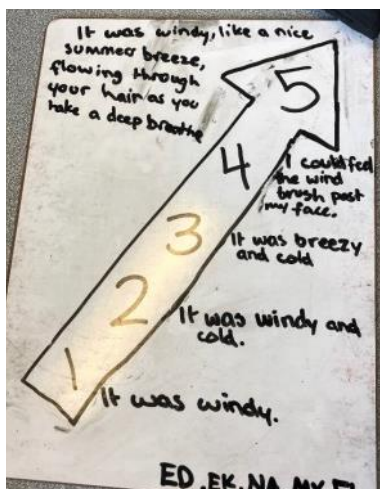 It was windy, like a nice
summer breeze,
flowing through
your hair as you
take a deep breathe
5
4
I could feel
the wind
brush past
my face.
3
It was breezy
and cold
2
It was windy and
cold.
1
It was windy.
ED, EK, NA, MK